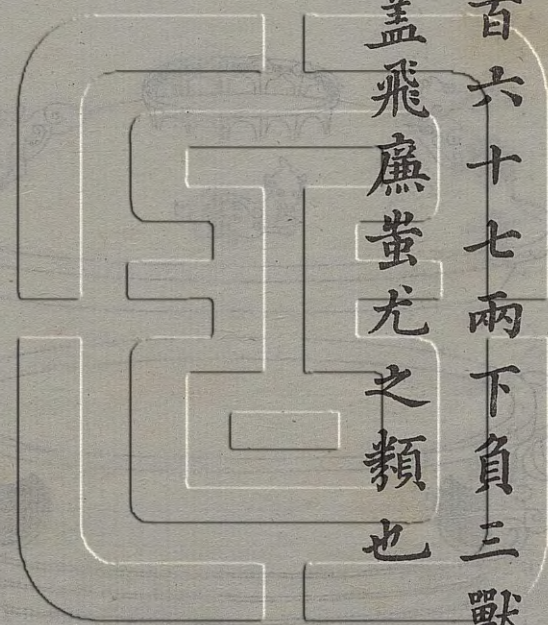 百六十七兩下負三獸
盖飛廉蚩尤之類也